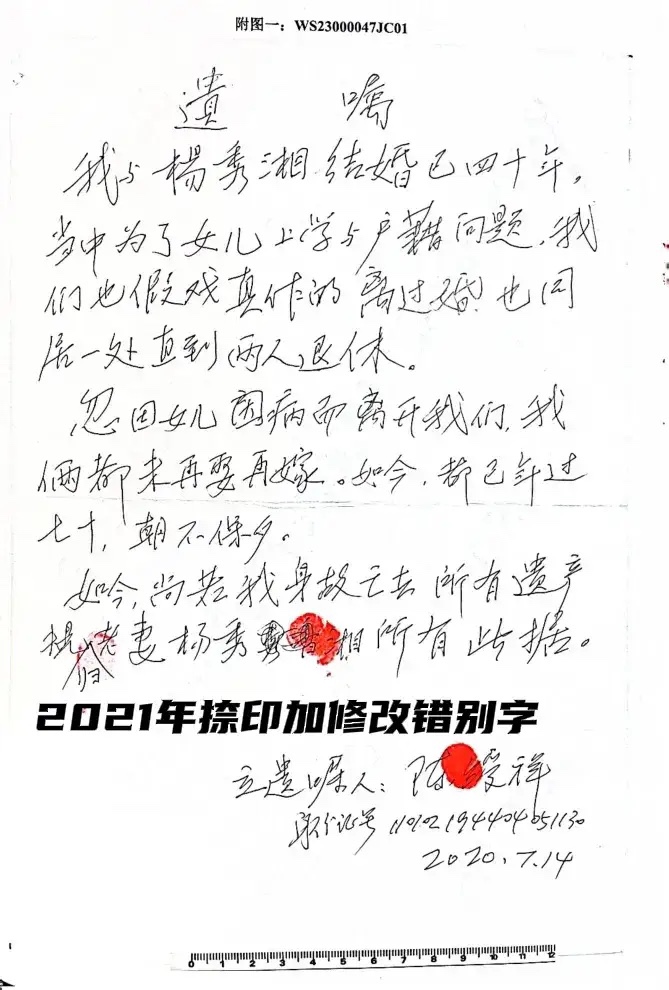 附图一：WS23000047JC01
遺嘱
我与楊秀湘结婚已四十年，
当中为了女儿上学与户籍问题，我
们也假戏真作的离过婚，也同
居一处直到两人退休。
忽因女儿因病而离开我们，我
俩都未再娶再嫁。如今，都已年过
七十，朝不保夕。
如今，尚若我身故亡去所有遗产
归老妻杨秀湘所有此据。
2021年捺印加修改错别字
立遗嘱人：陈绶祥
身份证号 110102194404051130
2020.7.14
0 1 2 3 4 5 6 7 8 9 10 11 12